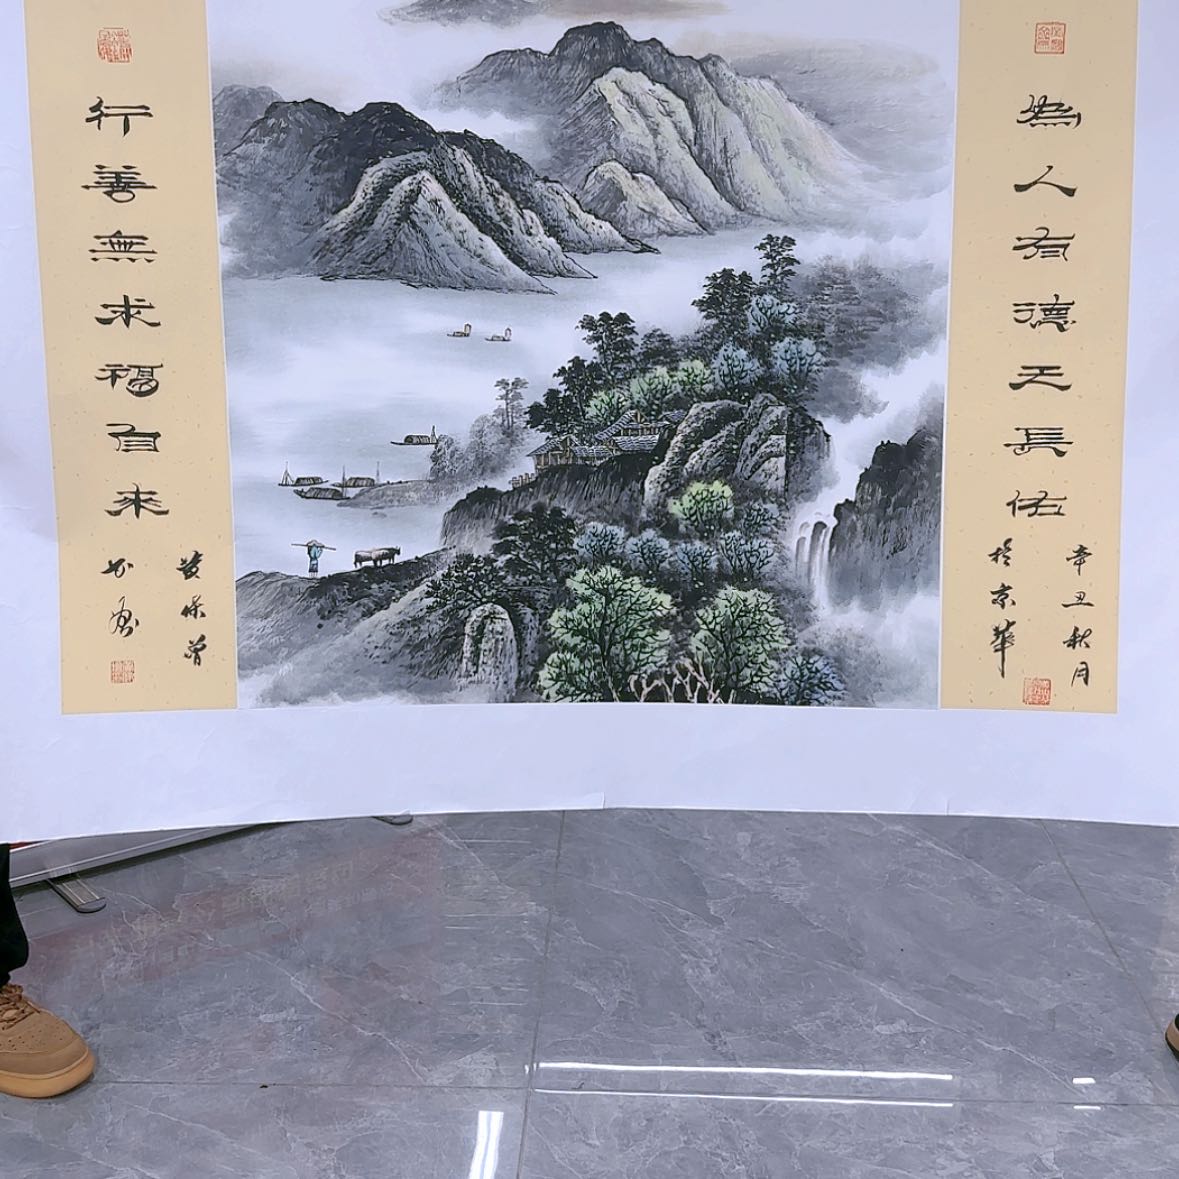 為人有德天長佑
辛丑秋月
於京華
行善無求福自來
黄保曾